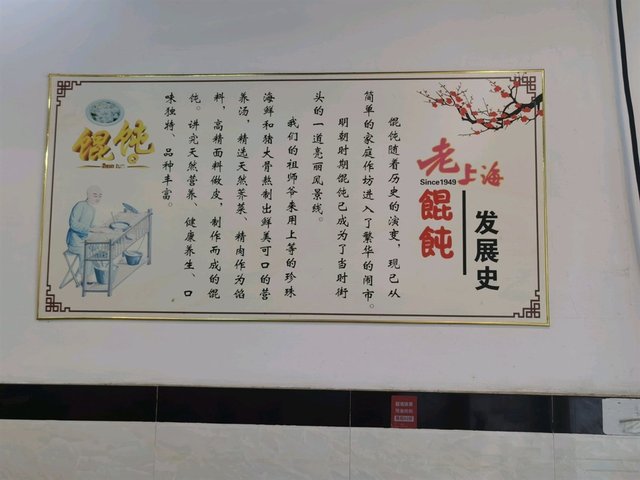 老上海
Since1949
馄饨
发展史
馄饨随着历史的演变，现已从
简单的家庭作坊进入了繁华的闹市。
明朝时期馄饨已成为了当时街
头的一道亮丽风景线。
我们的祖师爷来用上等的珍珠
海鲜和猪大骨熬制出鲜美可口的营
养汤，精选天然荠菜、精肉作为馅
料，高精面料做皮，制作而成的馄
饨。讲究天然营养、健康养生、口
味独特、品种丰富。
馄饨